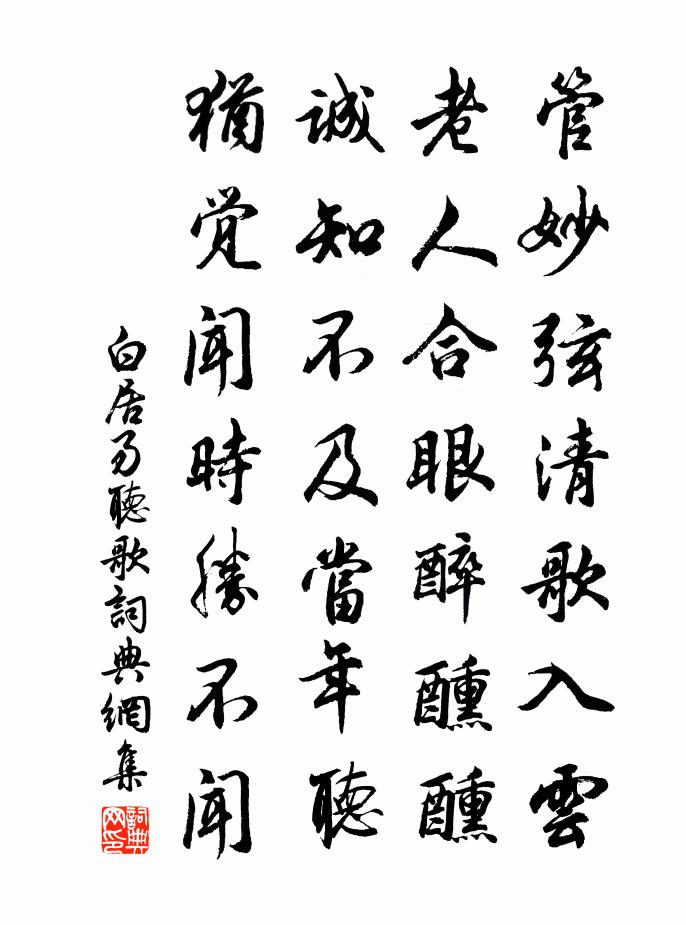 管妙弦清歌入雲
老人合眼醉醺醺
誠知不及當年聽
猶覚聞時勝不聞
白居易聽歌詞典網集
詞典网印